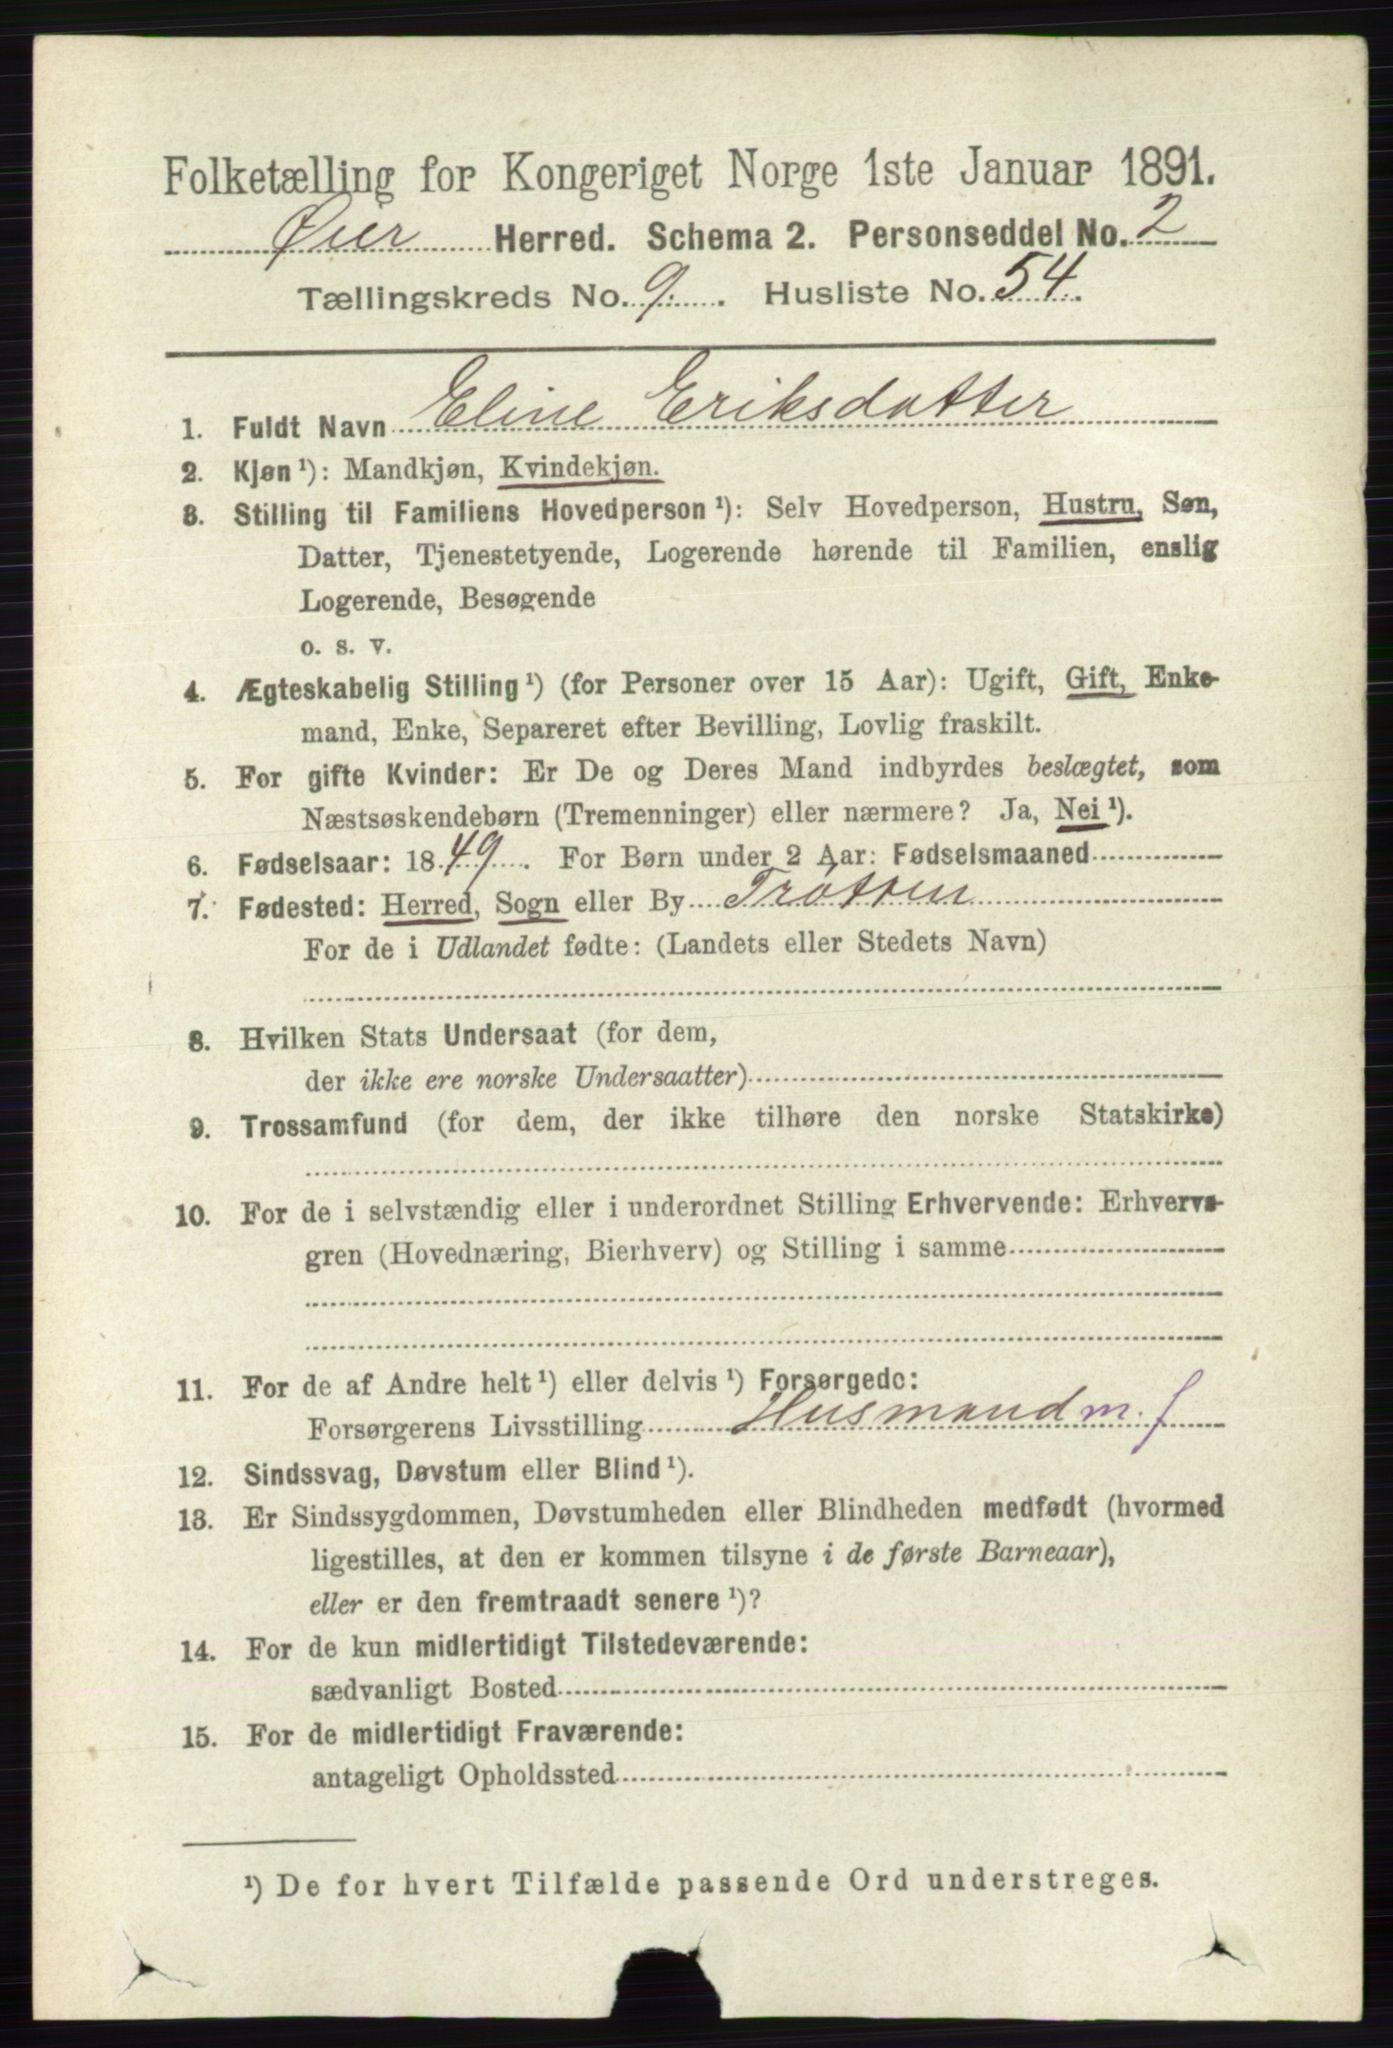 Folketælling for Kongeriget Norge 1ste Januar 1891.
Øier Herred. Schema 2. Personseddel No. 2
Tællingskreds No. 9. Husliste No. 54.
1. Fuldt Navn Eline Eriksdatter
2. Kjøn ¹): Mandkjøn, Kvindekjøn.
3. Stilling til Familiens Hovedperson ¹): Selv Hovedperson, Hustru, Søn,
Datter, Tjenestetyende, Logerende hørende til Familien, enslig
Logerende, Besøgende
o. s. v.
4. Ægteskabelig Stilling ¹) (for Personer over 15 Aar): Ugift, Gift, Enke-
mand, Enke, Separeret efter Bevilling, Lovlig fraskilt.
5. For gifte Kvinder: Er De og Deres Mand indbyrdes beslægtet, som
Næstsøskendebørn (Tremenninger) eller nærmere? Ja, Nei ¹).
6. Fødselsaar: 1849. For Børn under 2 Aar: Fødselsmaaned
7. Fødested: Herred, Sogn eller By Tròtten
For de i Udlandet fødte: (Landets eller Stedets Navn)
8. Hvilken Stats Undersaat (for dem,
der ikke ere norske Undersaatter)
9. Trossamfund (for dem, der ikke tilhøre den norske Statskirke)
10. For de i selvstændig eller i underordnet Stilling Erhvervende: Erhvervs-
gren (Hovednæring, Bierhverv) og Stilling i samme
11. For de af Andre helt ¹) eller delvis ¹) Forsørgede:
Forsørgerens Livsstilling Husmand m. f
12. Sindssvag, Døvstum eller Blind ¹).
13. Er Sindssygdommen, Døvstumheden eller Blindheden medfødt (hvormed
ligestilles, at den er kommen tilsyne i de første Barneaar),
eller er den fremtraadt senere ¹)?
14. For de kun midlertidigt Tilstedeværende:
sædvanligt Bosted
15. For de midlertidigt Fraværende:
antageligt Opholdssted
¹) De for hvert Tilfælde passende Ord understreges.